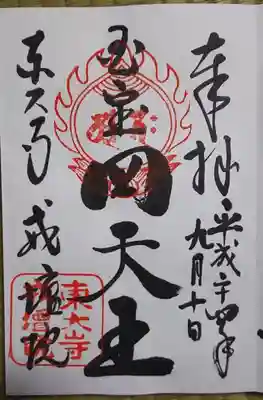 奉拝
平成二十四年
九月十日
国宝四天王
東大寺 戒壇院
東大寺
戒壇院